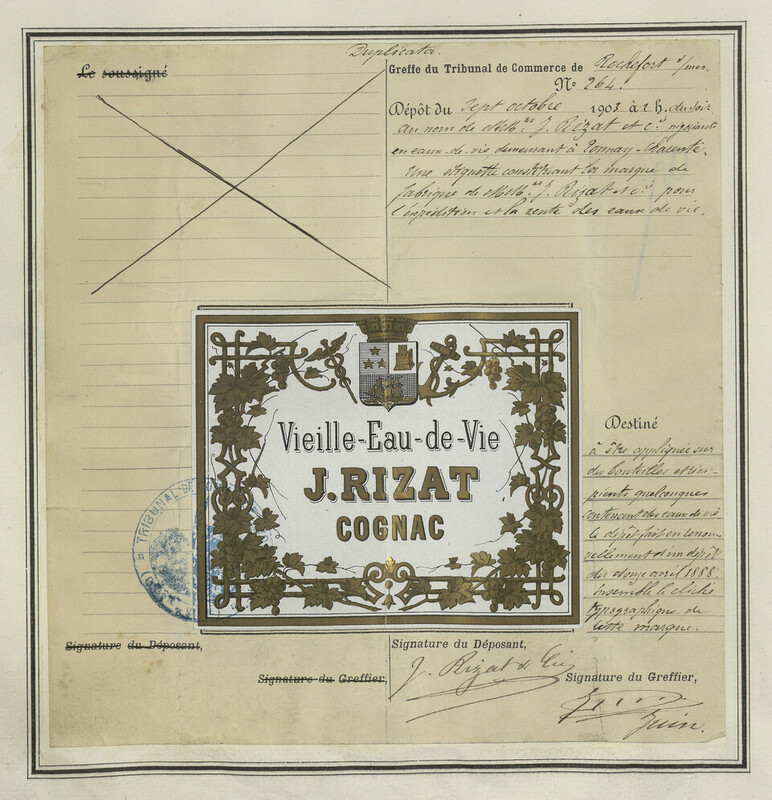 Duplicata.
Le soussigné
Greffe du Tribunal de Commerce de Rochefort s/mer.
No 264.
Dépôt du sept octobre 1903 à 2 h. du soir
au nom de MM.rs J. Rizat et Cie négociants
en eaux-de-vie demeurant à Tonnay-Charente.
Une étiquette constituant la marque de
fabrique de MM.rs J. Rizat et Cie pour
l'expédition et la vente des eaux de vie.
Vieille-Eau-de-Vie
J. RIZAT
COGNAC
TRIBUNAL-DE
Destiné
à être appliquée sur
des bouteilles et réci-
pients quelconques
contenant des eaux de vie
le dépôt fait en renou-
vellement d'un dépôt
du douze avril 1888.
Ensemble le cliché
typographique de
cette marque.
Signature du Déposant,
Signature du Greffier,
Signature du Déposant,
J. Rizat & Cie
Signature du Greffier,